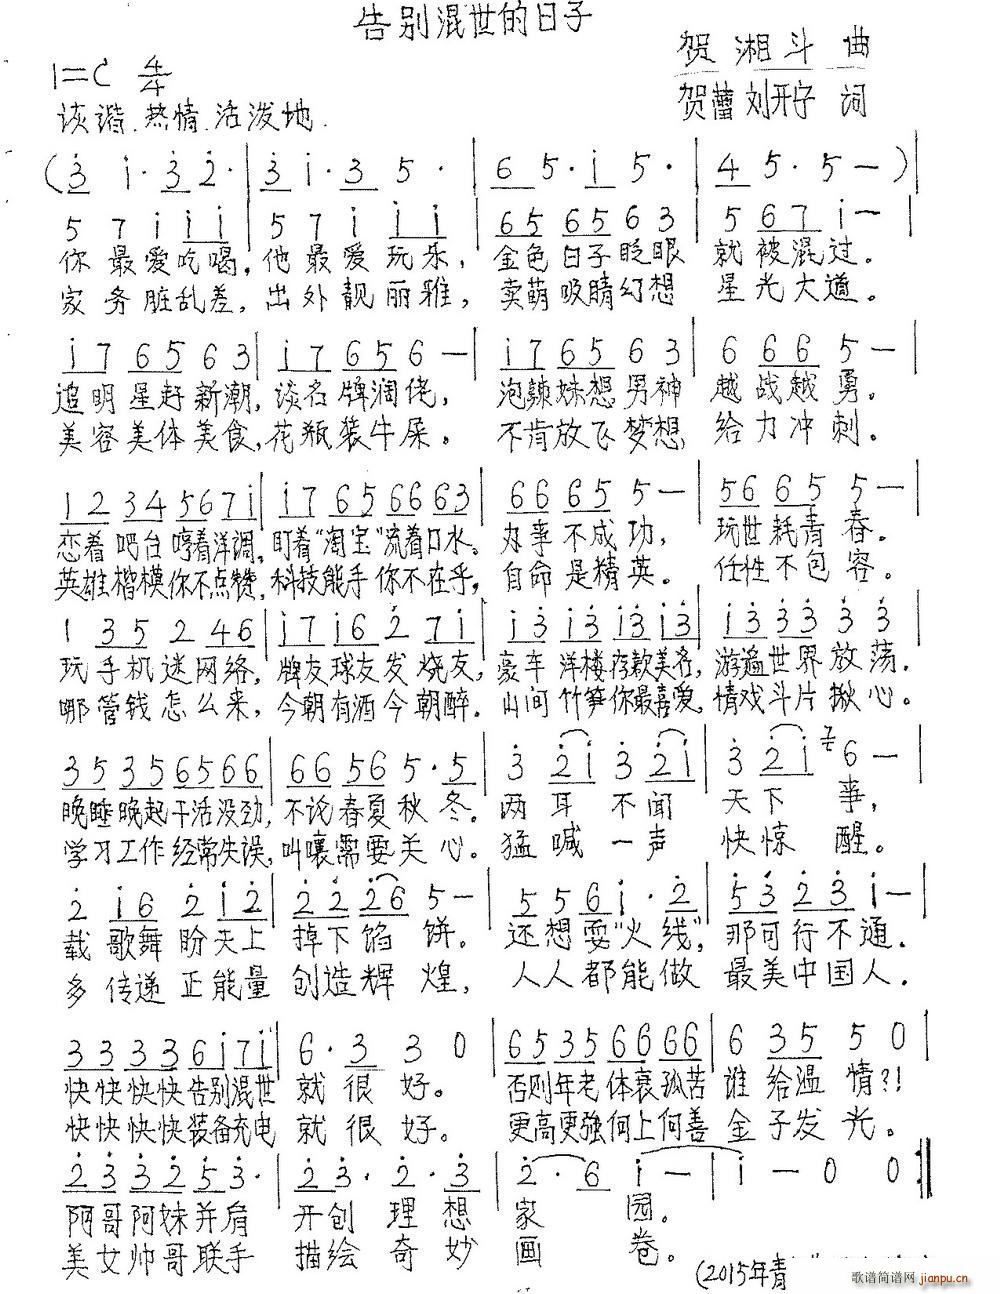 告别混世的日子
贺湘斗 曲
1=C 4/4
贺蕾 刘开宇 词
诙谐.热情.活泼地.
(3 i· 3 2· | 3 i· 3 5 · | 6 5· i 5· | 4 5· 5 — ) |
5 7 i i i | 5 7 i i i | 65 65 6 3 | 5 67 i — |
你最爱吃喝，他最爱玩乐，金色日子眨眼就被混过。
家务脏乱差，出外靓丽雅，卖萌吸睛幻想星光大道。
i7 65 6 3 | i7 65 6 — | i7 65 6 3 | 6 66 5 — |
追明星赶新潮，谈名牌润佬，泡辣妹想男神越战越勇。
美容美体美食，花瓶装牛屎。不肯放飞梦想，给力冲刺。
12 34 56 7i | i7 65 66 63 | 66 65 5 — | 56 65 5 — |
恋着吧台哼着洋调，盯着“淘宝”流着口水。办事不成功，玩世耗青春。
英雄楷模你不点赞，科技能手你不在乎，自命是精英。任性不包容。
1 35 2 46 | i7 i6 2 7i | i3 i3 i3 i3 | i3 33 3 3 |
玩手机迷网络，牌友球友发烧友，豪车洋楼存款美名，游遍世界放荡.
哪管钱怎么来，今朝有酒今朝醉.山间竹笋你最喜爱，情戏斗片揪心。
35 35 65 66 | 66 56 5· 5 | 3 2i 3 2i | 3 2i 6 — |
晚睡晚起干活没劲，不论春夏秋冬。两耳不闻天下事，
学习工作经常失误，叫嚷需要关心。猛喊一声快惊醒。
2 i6 2 i2 | 22 26 5 — | 5 5 6 i· 2 | 53 23 i — |
载歌舞盼天上掉下馅饼。还想耍“火线”，那可行不通.
多传递正能量创造辉煌，人人都能做最美中国人.
33 33 6i 7i | 6· 3 3 0 | 65 35 66 66 | 6 35 5 0 |
快快快快告别混世就很好。否则年老体衰孤苦谁给温情?!
快快快快装备充电就很好。更高更强何上何善金子发光。
23 32 53· | 23· 2· 3 | 2· 6 i — | i — 0 0 :||
阿哥阿妹并肩开创理想家园。
美女帅哥联手描绘奇妙画卷。
(2015年青
歌谱简谱网 jianpu.cn